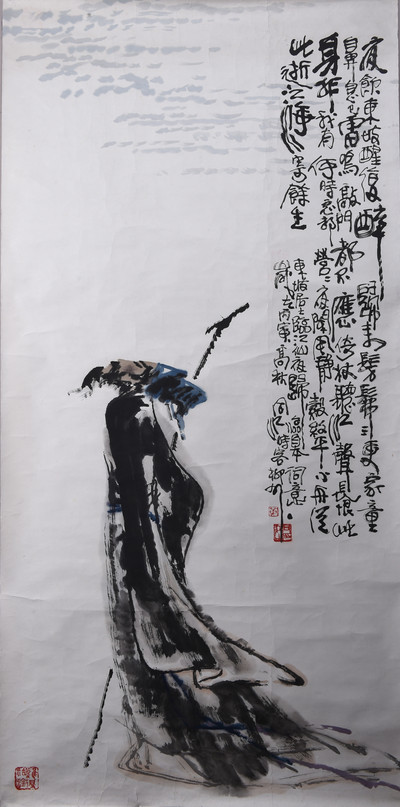 夜飲東坡醒復醉歸來髣髴三更家童
鼻息已雷鳴敲門都不應倚杖聽江聲長恨此
身非我有何時忘却營〻夜闌風靜縠紋平小舟從
此逝江海寄餘生
東坡居士臨江仙夜歸詞意
歲在丙寅高秋時客柳州